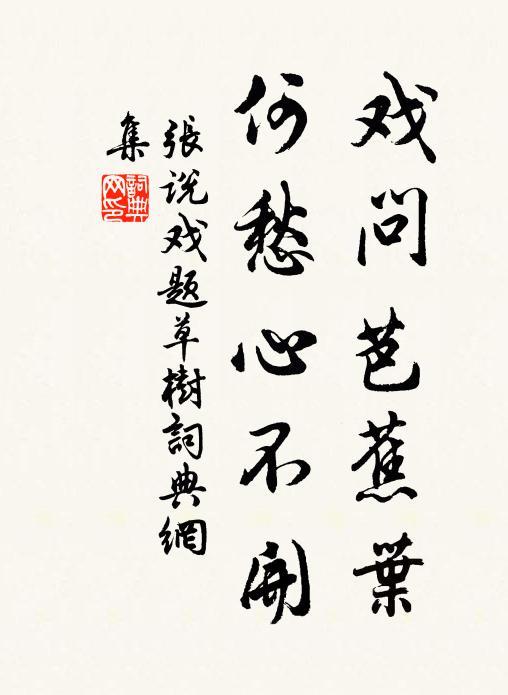 戏问芭蕉葉
何愁心不開
張说戏题草樹詞典網
集
詞典网印